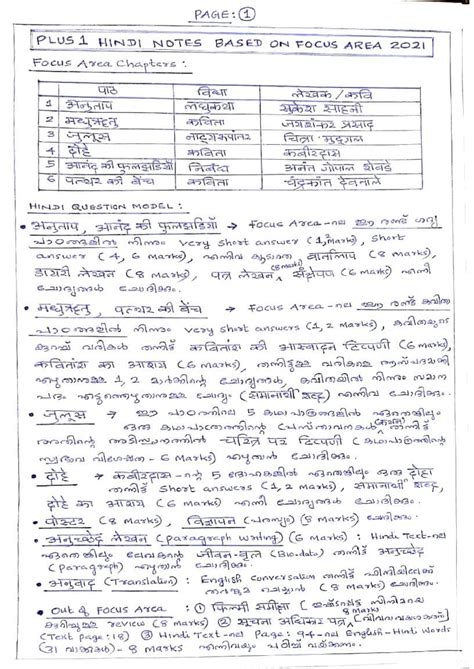 PAGE: 1
PLUS 1 HINDI NOTES BASED ON FOCUS AREA 2021
Focus Area Chapters :
पाठ विधा लेखक / कवि
1 अनुताप लघुकथा सुकेश साहनी
2 मधुऋतु कविता जयशंकर प्रसाद
3 जुलूस नाट्यरूपांतर चित्रा मुद्गल
4 दोहे कविता कबीरदास
5 आनंद की फुलझड़ियाँ निबंध अनंत गोपाल शेवड़े
6 पत्थर की बेंच कविता चंद्रकांत देवताले
HINDI QUESTION MODEL :
• अनुताप, आनंद की फुलझड़ियाँ → Focus Area-ലെ ഈ രണ്ട് ഗദ്യ
പാഠങ്ങളിൽ നിന്നും very short answer (1, 2 marks), short
answer (4, 6 marks), എന്നിവ കൂടാതെ वार्तालाप (8 marks),
डायरी लेखन (8 marks), पत्र लेखन (8 marks) संक्षेपण (6 marks) എന്നീ
ചോദ്യങ്ങൾ ചോദിക്കും.
• मधुऋतु, पत्थर की बेंच → Focus Area-ലെ ഈ രണ്ട് കവിത
പാഠങ്ങളിൽ നിന്നും very short answers (1, 2 marks), കവിതയുടെ
കുറച്ച് വരികൾ തന്നിട്ട് कवितांश की आस्वादन टिप्पणी (6 marks),
कवितांश का आशय (6 marks), തന്നിട്ടുള്ള വരികളെ
1, 2 മാർക്കിന്റെ ചോദ്യങ്ങൾ, കവിതയിൽ നിന്നും സമാന
പദം (समानार्थी शब्द) എന്നിവ ചോദിക്കും.
• जुलूस → ഈ പാഠത്തിലെ 5 കഥാപാത്രങ്ങളിൽ ഏതെങ്കിലും
ഒരു കഥാപാത്രത്തിന്റെ (പ്രസ്താവനകൾ)
അതിന്റെ അടിസ്ഥാനത്തിൽ चरित्र पर टिप्पणी (കഥാപാത്രത്തിന്റെ
സ്വഭാവ വിശേഷണം - 6 Marks) എഴുതാൻ ചോദിക്കും.
• दोहे → कबीरदास-ന്റെ 5 ദോഹകളിൽ ഏതെങ്കിലും ഒരു दोहा
തന്നിട്ട് short answers (1, 2 marks), समानार्थी शब्द,
दोहे का आशय (6 marks) എന്നീ ചോദ്യങ്ങൾ ചോദിക്കും.
• पोस्टर (8 marks), विज्ञापन (പരസ്യം) (8 marks) ചോദിക്കും.
• अनुच्छेद लेखन (Paragraph writing) (6 marks) : Hindi Text-ലെ
ഏതെങ്കിലും ലേഖകന്റെ जीवन-वृत्त (Bio-data) തന്നിട്ട് अनुच्छेद
(Paragraph) എഴുതാൻ ചോദിക്കും.
• अनुवाद (Translation) : English Conversation തന്നിട്ട് ഹിന്ദിയിലേക്ക്
ചോദിക്കും.
• Out of Focus Area : ① फिल्मी समीक्षा
review (8 marks) ② सूचना अधिकार पत्र 8 marks
(Text page : 18) ③ Hindi Text-ലെ Page : 94-ലെ English-Hindi Words
8 marks നന്നായി പഠിക്കുക